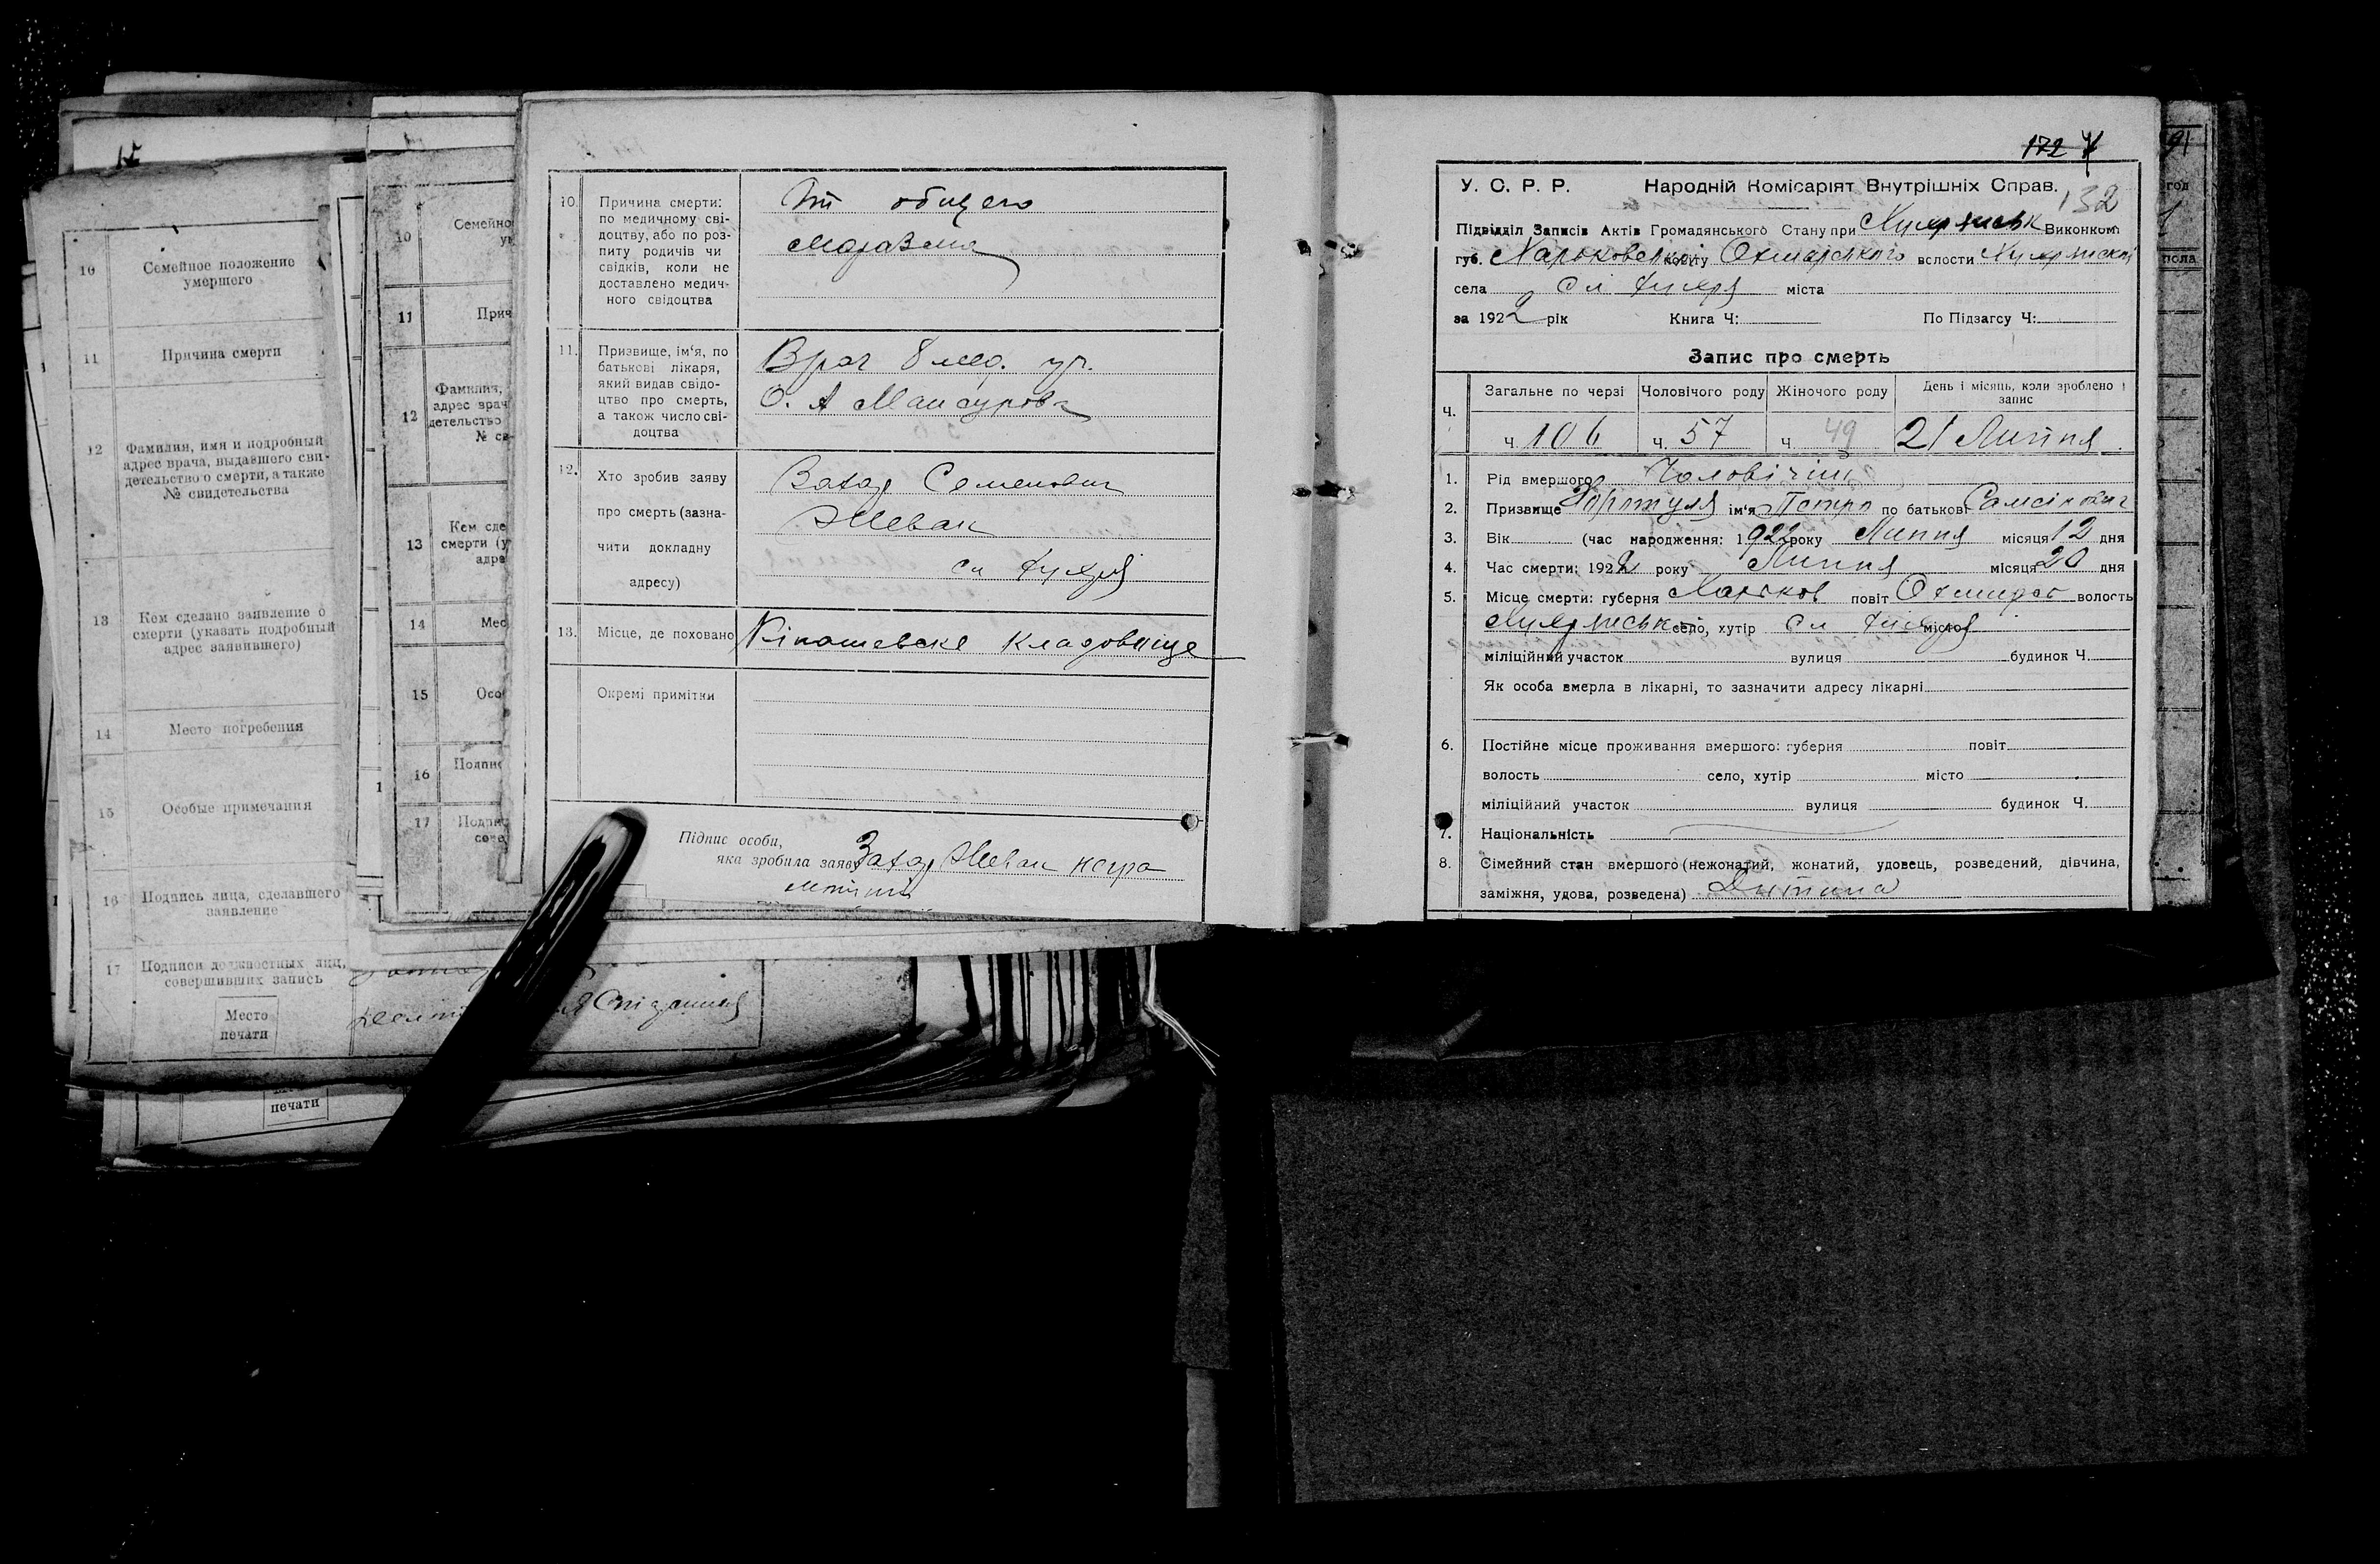 10
Семейное положение
умершего
11
Причина смерти
12
Фамилия, имя и подробный
адрес врача, выдавшего сви-
детельство о смерти, а также
№ свидетельства
13
Кем сделано заявление о
смерти (указать подробный
адрес заявившего)
14
Место погребения
15
Особые примечания
16
Подпись лица, сделавшего
заявление
17
Подписи должностных лиц,
совершивших запись
Место
печати
печати
10
Семейно
11
Прич
12
Фамилия,
адрес врач
детельство
№ св
13
Кем сде
смерти (у
адре
14
Мес
15
Осо
16
Подпис
17
10.
Причина смерти:
по медичному сві-
доцтву, або по роз-
питу родичів чи
свідків, коли не
доставлено медич-
ного свідоцтва
От общего
маразма
11.
Призвище, ім'я, по
батькові лікаря,
який видав свідо-
цтво про смерть,
а також число сві-
доцтва
Врач 8 мед. уч.
О. А Мансурова
12.
Хто зробив заяву
про смерть (зазна-
чити докладну
адресу)
Захар Семенович
сл
13.
Місце, де поховано
кладовище
Окремі примітки
Підпис особи,
яка зробила заяву
Захар негра
мотний
172
132
У. С. Р. Р. Народній Комісаріят Внутрішніх Справ.
Підвідділ Записів Актів Громадянського Стану при Виконком.
губ. Харьковській повіту Охтирського волости
села сл міста
за 1922 рік Книга Ч: По Підзагсу Ч:
Запис про смерть
Ч.
Загальне по черзі Чоловічого роду Жіночого роду День і місяць, коли зроблено
запис
ч. 106 ч. 57 ч. 49 21 Липня
1. Рід вмершого Чоловічий
2. Призвище ім'я Петро по батькові Самсінович
3. Вік (час народження: 1922 року Липня місяця 12 дня
4. Час смерти: 1922 року Липня місяця 20 дня
5. Місце смерти: губерня Харьков повіт Охтирськ волость
село, хутір сл місто
міліційний участок вулиця будинок Ч.
Як особа вмерла в лікарні, то зазначити адресу лікарні
6. Постійне місце проживання вмершого: губерня повіт
волость село, хутір місто
міліційний участок вулиця будинок Ч.
7. Національність
8. Сімейний стан вмершого (нежонатий, жонатий, удовець, розведений, дівчина,
заміжня, удова, розведена) Дитина